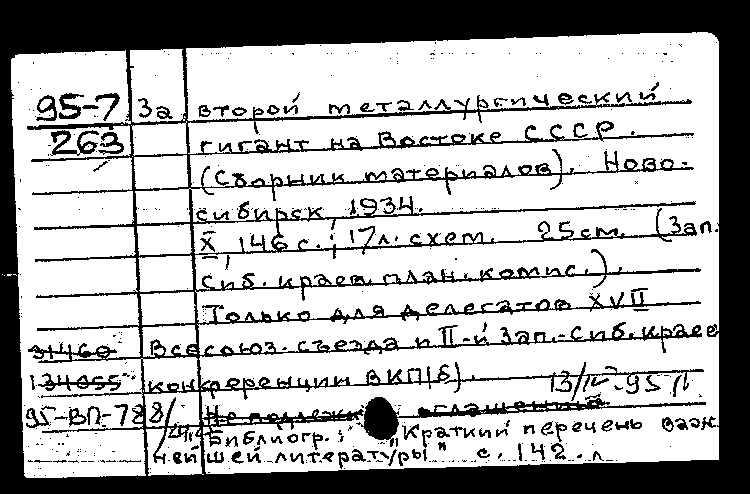 95-7 За второй металлургический
263 гигант на Востоке СССР.
(Сборник материалов). Ново-
сибирск, 1934.
X, 146 с.; 17л. схем. 25см. (Зап.
Сиб. краев. план. комис.).
Только для делегатов XVII
31460 Всесоюз. съезда и II-й Зап.-Сиб. краев
134055 конференции ВКП(б). 13/IV-95
95-ВП-788/ Не подлежи оглашению
Библиогр.: "Краткий перечень важ
нейшей литературы" с. 142. л